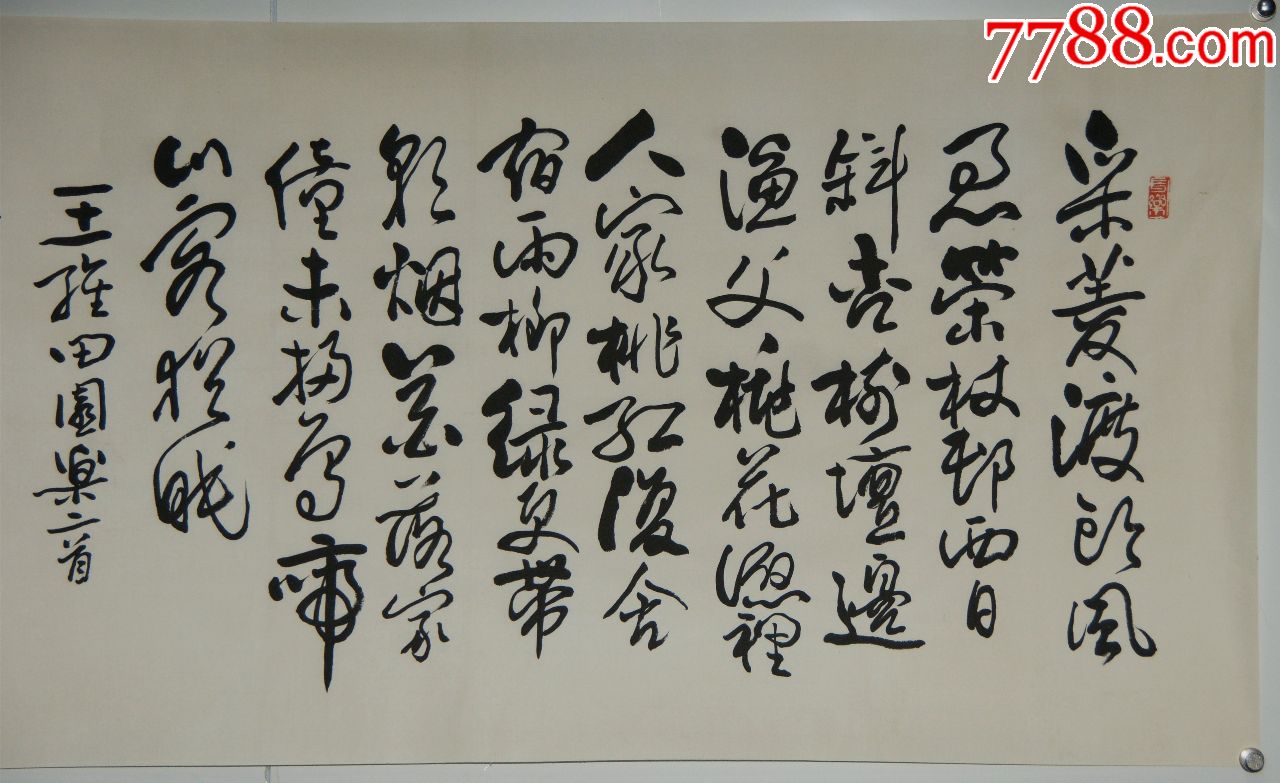 7788.com
采菱渡頭風
急策杖邨西日
斜杏樹壇邊
漁父桃花源裡
人家桃紅復含
宿雨柳緑更帶
朝烟花落家
僮未掃鳥啼
山客猶眠
王維田園樂二首